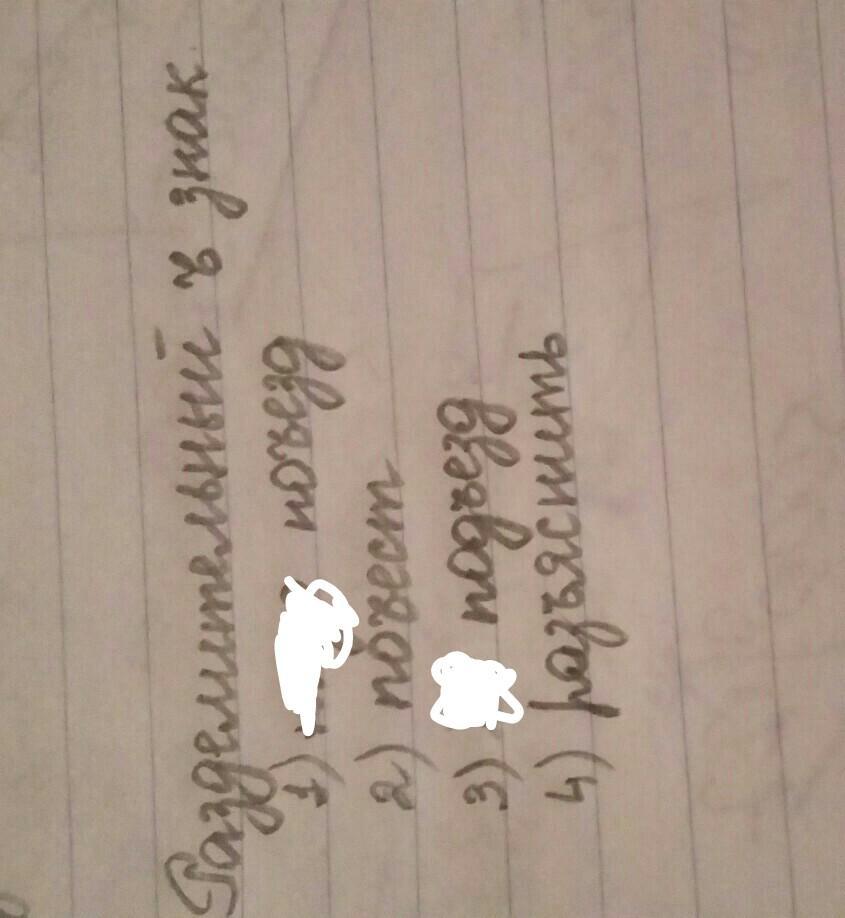 Разделительный ъ знак.
1) поъезд
2) поъест
3) подъезд
4) разъяснить